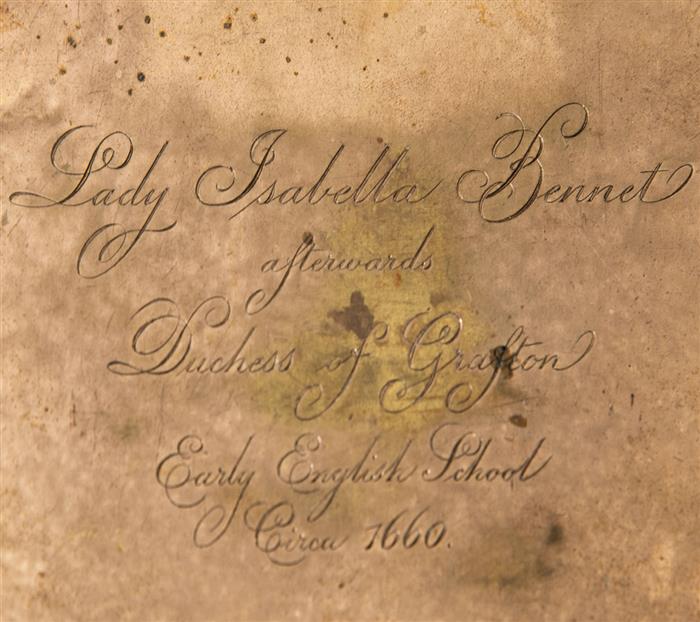 Lady Isabella Bennet
afterwards
Duchess of Grafton
Early English School
Circa 1660.